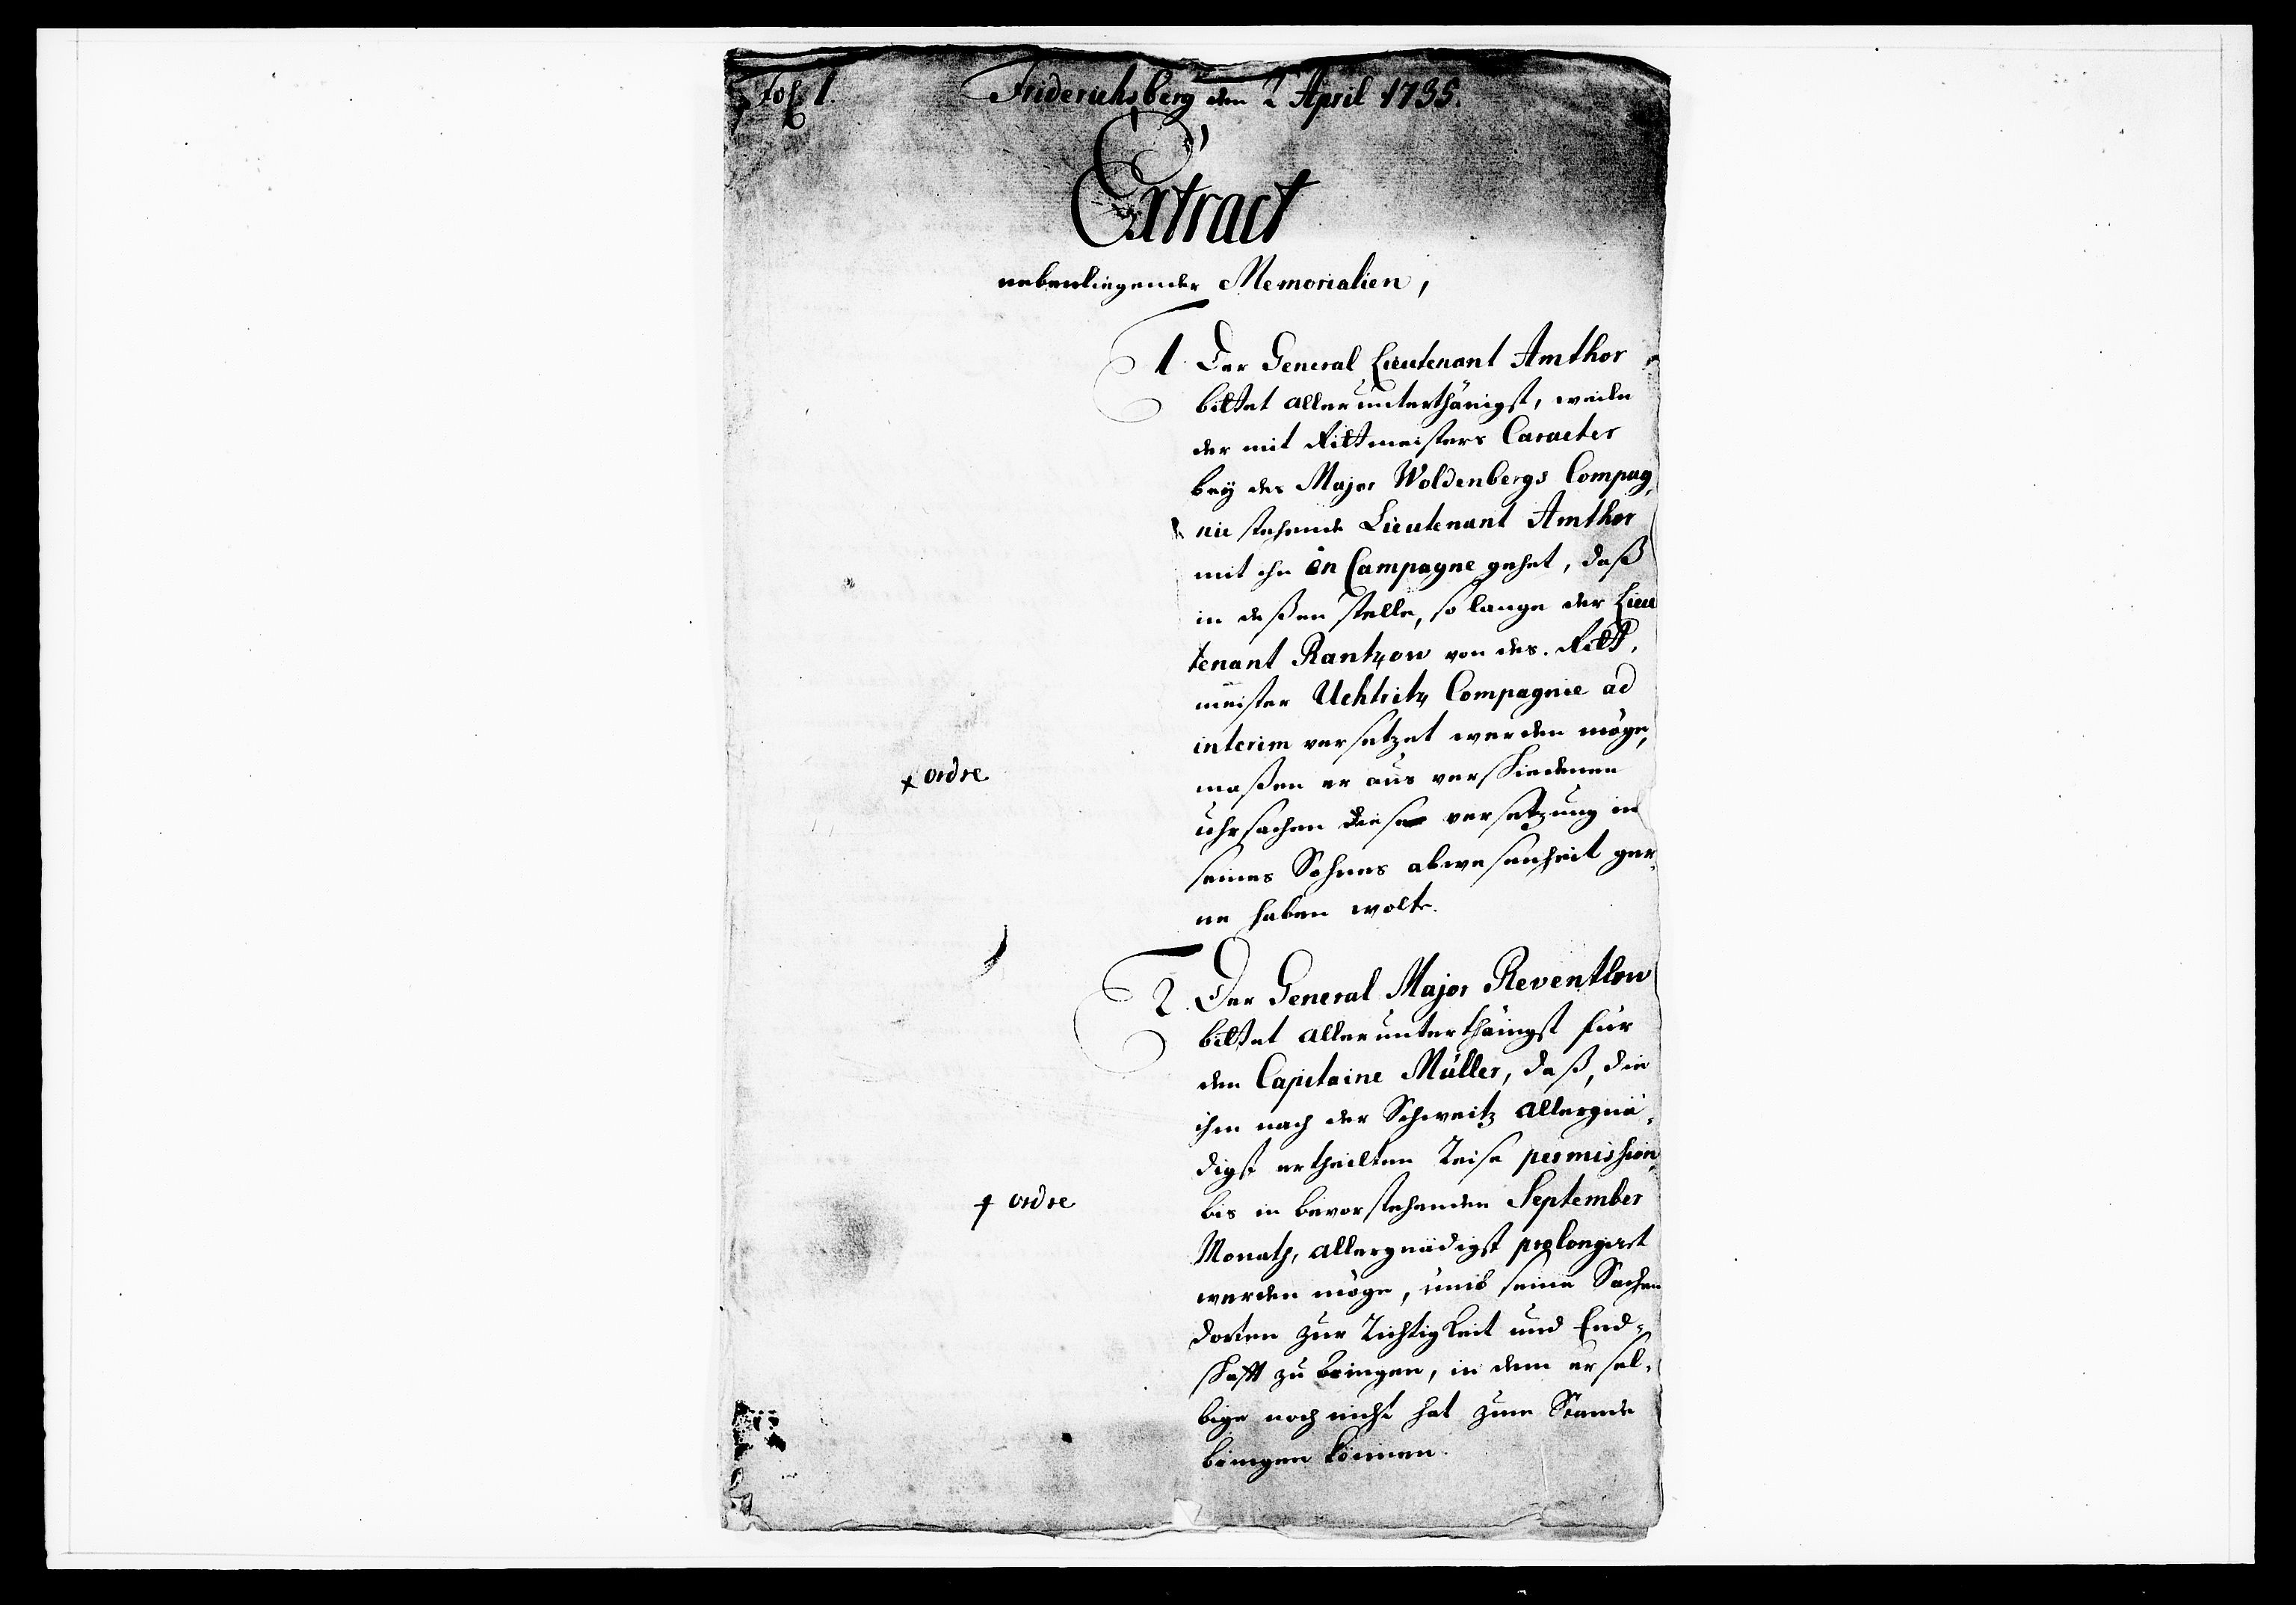 Fol 1. Friderichsberg den 2 April 1735.
Extract
nebenliegender Memorialien,
1. Der General Lieutenant Amthor
bittet allerunterthänigst, weile
der mit Rittmeisters Caracter
beÿ des Major Woldenbergs Compag,
nie stehende Lieutenant Amthor
mit ihn en Campagne gehet, daß
in deßen stelle, so lange der Lieu
tenant Rantzow von des Ritt,
meister Uchtritz Compagnie ad
interim versetzet werden möge,
maßen er aus verschiedenen
+ ordre
uhrsachen diese versetzung in
seines Sohnes abwesenheit ger,
ne haben wolte.
2. Der General Major Reventlow
bittet allerunterthänigst für
den Capitaine Müller, daß, die
ihm nach der Schweitz allergnä,
digst ertheilten Reise permission,
bis in bevorstehenden September
+ ordre
Monath, allergnädigst prolongiret
werden möge, umb seine Sachen
dorten zur Richtigkeit und End-
schafft zu bringen, in dem er sel,
bige noch nicht hat zum Stande
bringen können.